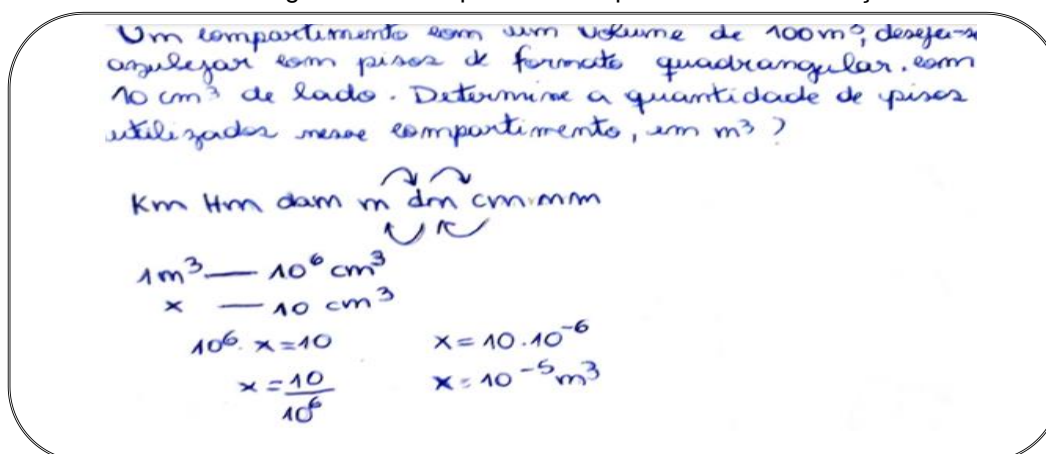 Um compartimento com um volume de 100 m³, deseja-se
azulejar com pisos de formato quadrangular. com
10 cm³ de lado. Determine a quantidade de pisos
utilizados nesse compartimento, em m³ ?
Km Hm dam m dm cm mm
1m³ — 10⁶ cm³
x — 10 cm³
10⁶. x = 10 x = 10 . 10⁻⁶
x = 10/10⁶ x = 10⁻⁵ m³